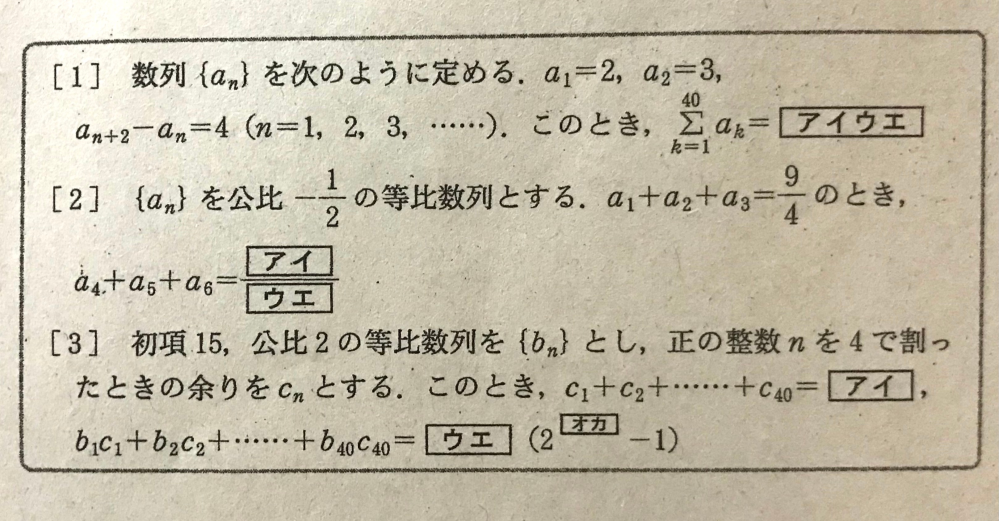 [1] 数列 {aₙ} を次のように定める. a₁=2, a₂=3,
aₙ₊₂−aₙ=4 (n=1, 2, 3, ……). このとき, \sum_{k=1}^{40} aₖ= アイウエ
[2] {aₙ} を公比 −\frac{1}{2} の等比数列とする. a₁+a₂+a₃=\frac{9}{4} のとき,
a₄+a₅+a₆=\frac{アイ}{ウエ}
[3] 初項 15, 公比 2 の等比数列を {bₙ} とし, 正の整数 n を 4 で割っ
たときの余りを cₙ とする. このとき, c₁+c₂+……+c₄₀= アイ ,
b₁c₁+b₂c₂+……+b₄₀c₄₀= ウエ (2^{オカ} −1)